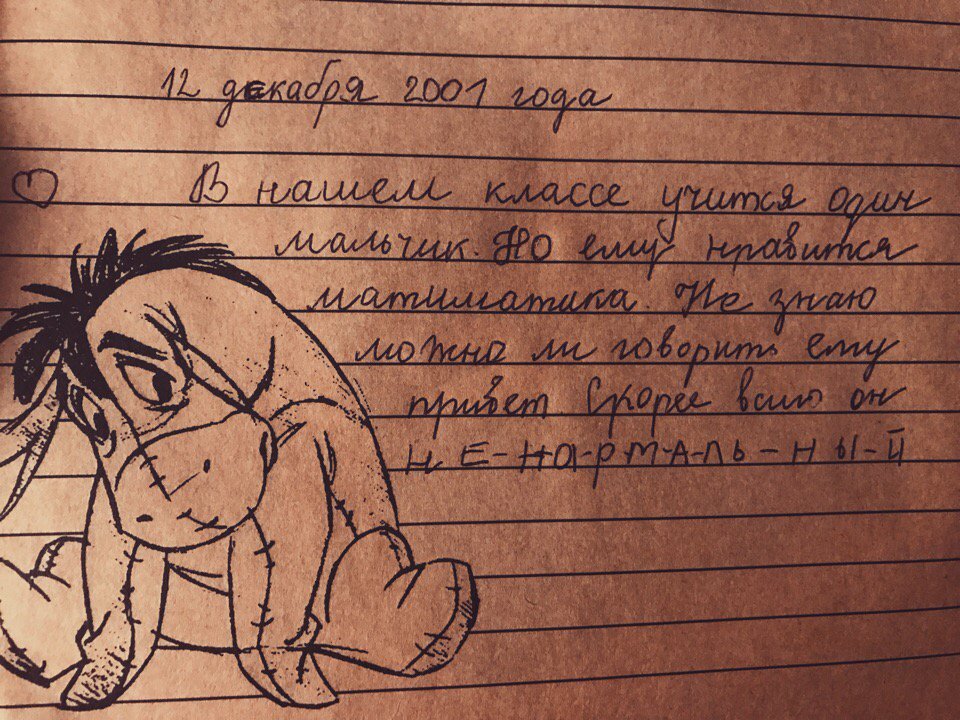 12 декабря 2001 года
В нашем классе учится один
мальчик. Но ему нравится
матиматика. Не знаю
можно ли говорить ему
привет Скорее всиго он
Н Е-НА-Р М-А-ЛЬ-НЫ-Й